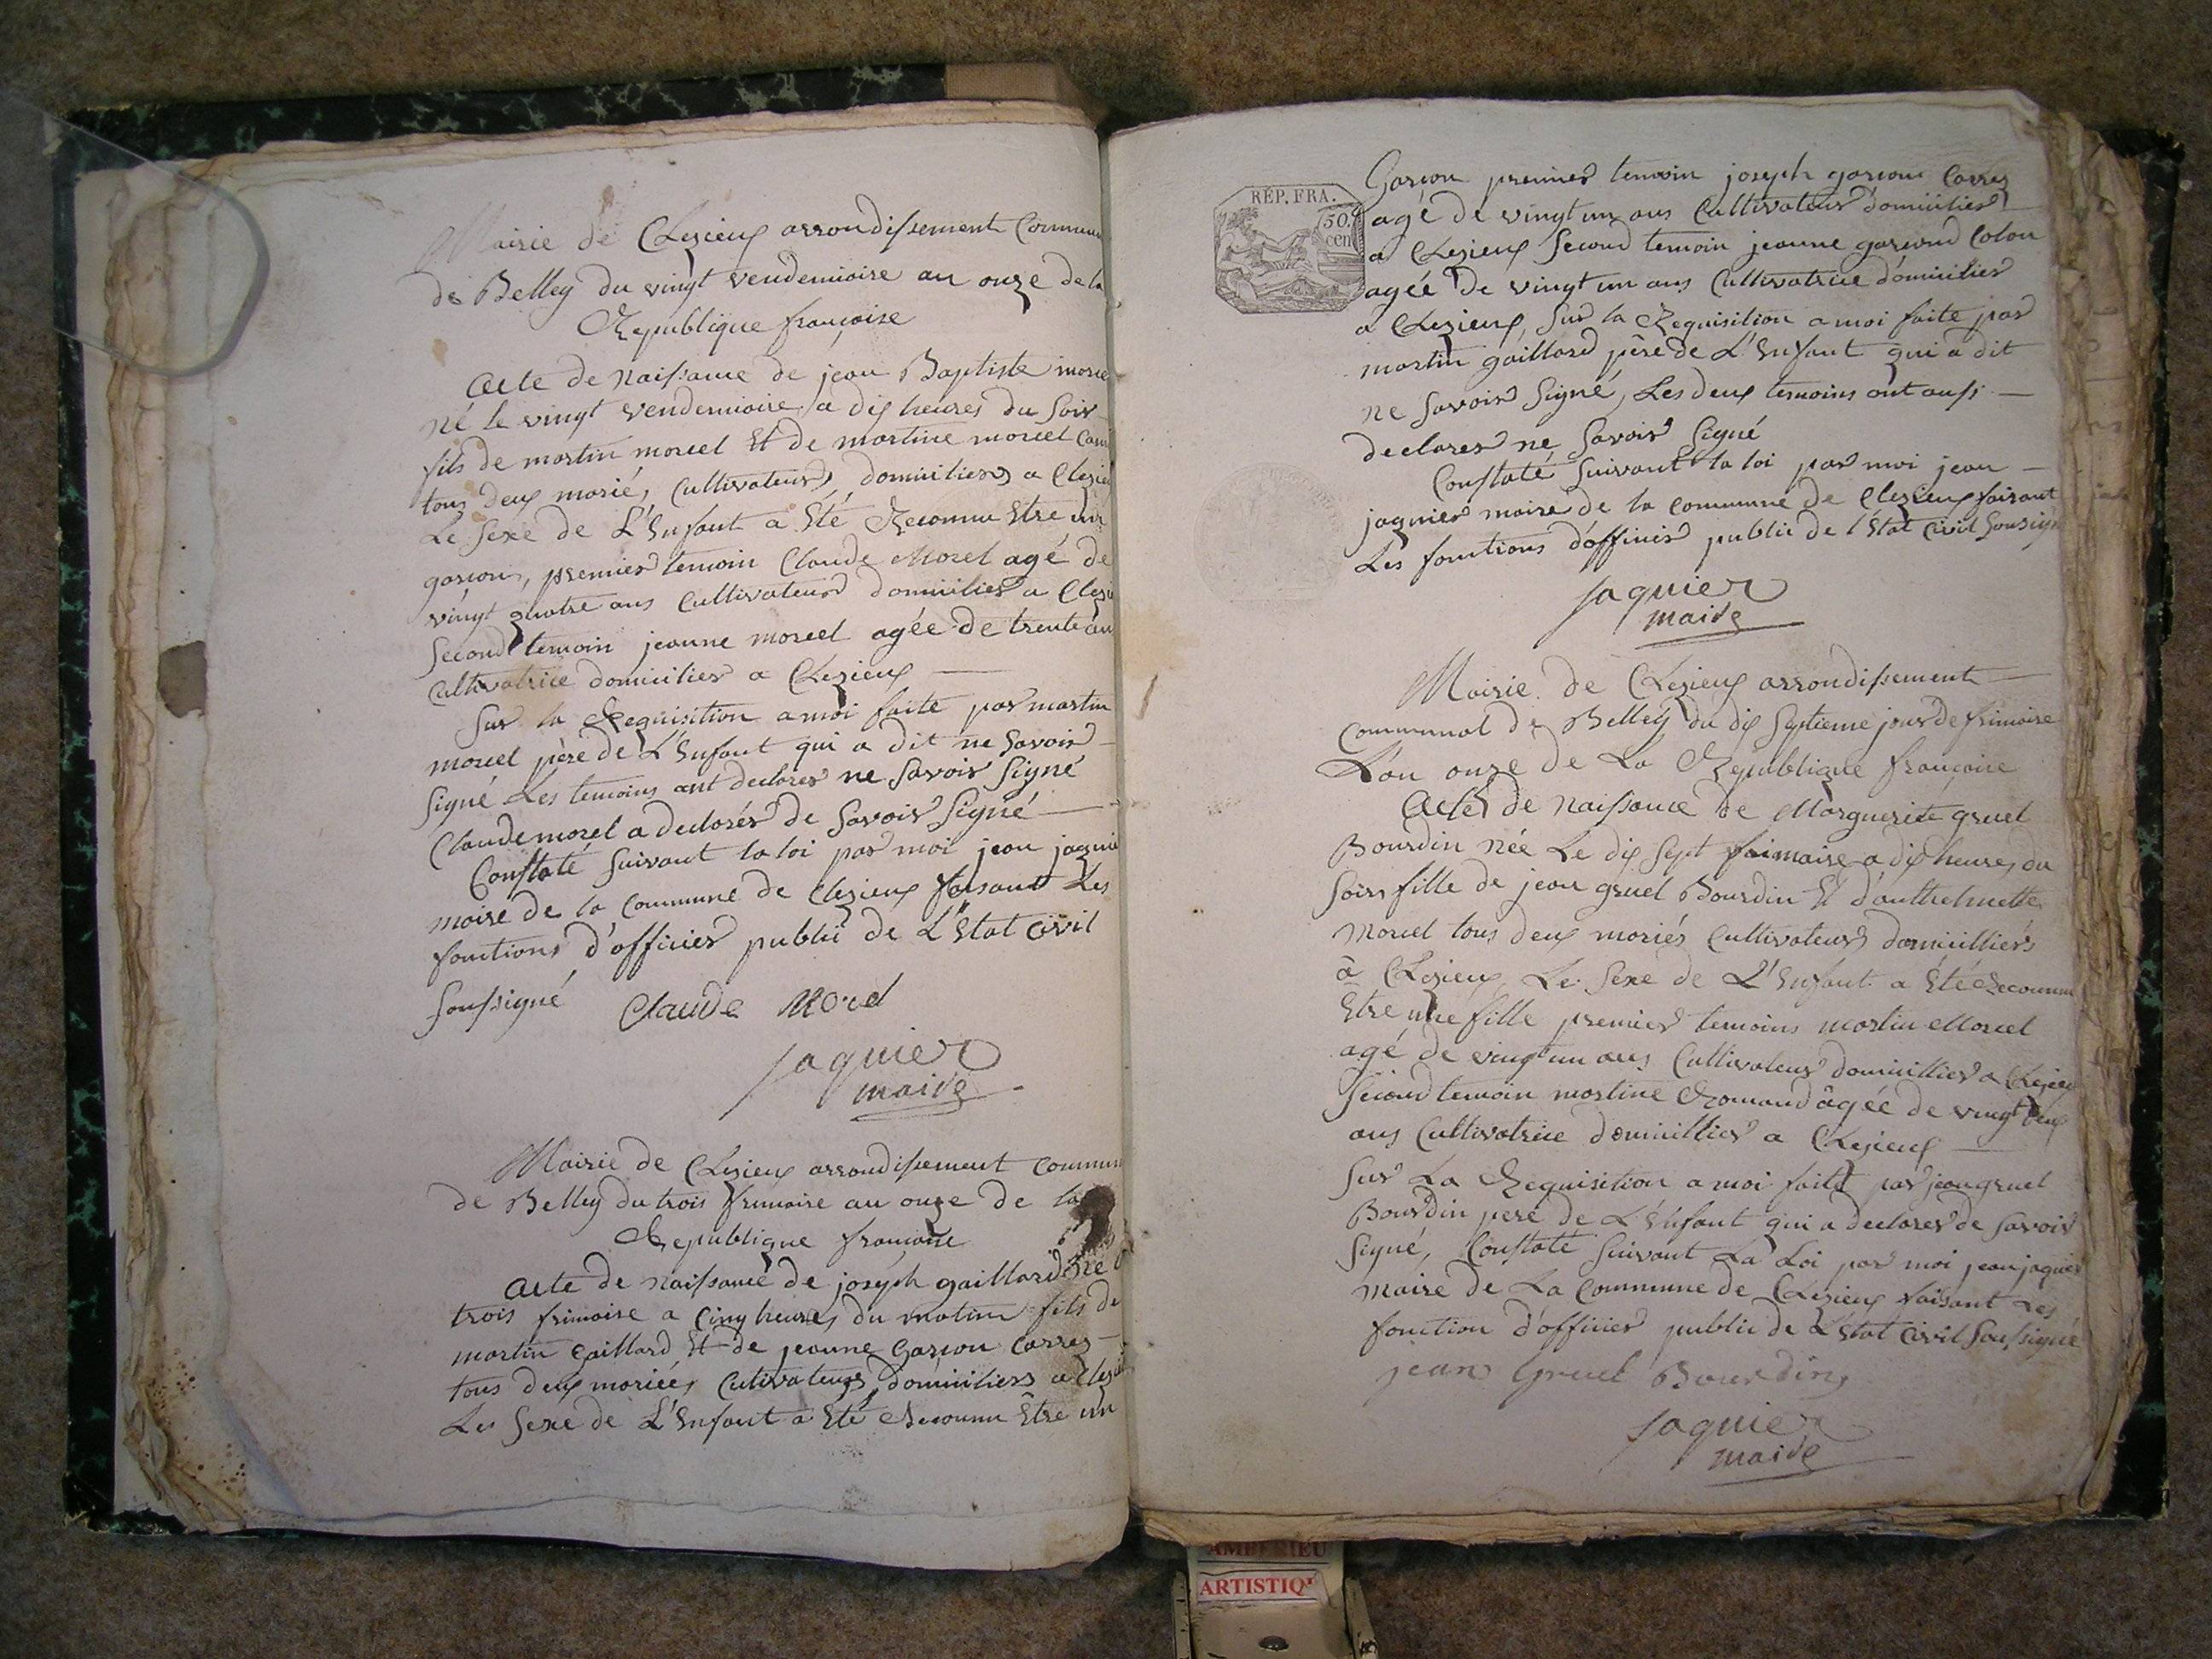 Mairie de Cleyzieux arrondissement Commun
de Belley du vingt vendemiaire an onze de la
Republique françoise
Acte de Naissance de jean Baptiste morcel
né le vingt vendemiaire a dix heures du Soir
fils de martin morcel Et de martine morcel
tous deux marié, Cultivateurs domiciliers a
Le Sexe de L'Enfant a Eté Reconnu Etre un
garçon, premier temoin Claude Morel agé de
vingt quatre ans Cultivateur domicilier a
Second temoin jeanne morcel agée de trente an
Cultivatrice domicilier a Clezieux
Sur la Requisition a moi faite par martin
morcel père de L'Enfant qui a dit ne Savoir
Signé Les temoins ont declarer ne Savoir Signé
Claude morel a declarér de Savoir Signé
Constaté Suivant la loi par moi jean jaquie
maire de la Commune de Clezieux faisant Les
fonctions d'officier public de L'Etat Civil
Soussigné Claude Morel
Jaquier
maire
Mairie de Clezieux arrondissement Commun
de Belley du trois frimaire an onze de la
Republique françoise
Acte de Naissance de joseph gaillard né
trois frimaire a Cinq heures du matin fils de
martin Gaillard Et de jeanne Garçon Carrez
tous deux mariés Cutivateurs domiciliers a
Les Sexe de L'Enfant a Eté Reconnu Etre un
RÉP. FRA.
50
cen
Garçon premier temoin joseph garçon Carrez
agé de vingt un ans Cultivateur domicilier
a Clezieux Second temoin jeanne garçond Colon
agée de vingt un ans Cultivatrice domicilier
a Clezieux, Sur la Requisition a moi faite par
martin gaillard père de L'Enfant qui a dit
ne Savoir Signé, Les deux temoins ont aussi
declarer ne Savoir Signé
Constaté Suivant la loi par moi jean
jaquier maire de la commune de Clezieux faisant
Les fonctions d'officier public de l'Etat Civil Sousigné
Jaquier
maire
Mairie de Clezieux arrondissement
Communal de Belley du dix Septieme jour de frimaire
L'an onze de La Republique françoise
Acte de Naissance de Marguerite gruel
Bourdin née Le dix Sept frimaire a dix heures du
Soir fille de jean gruel Bourdin Et d'anthelmette
Morcel tous deux mariés Cultivateurs domicilliérs
à Clezieux Le Sexe de L'Enfant a Eté Reconnu
Etre une fille premier temoins martin Morcel
agé de vingt un ans Cultivateur domicillier a Clezieux
Second temoin martine Romand âgée de vingt deux
ans Cultivatrice domicillier a Clezieux
Sur La Requisition a moi faite par jean gruel
Bourdin pere de L'Enfant qui a declarer de Savoir
Signé, Constaté Suivant La Loi par moi jean jaquier
maire de La Commune de Clezieux faisant Les
fonction d'officier public de L'Etat Civil Soussigné
jean Gruel Bourdin
Jaquier
maire
AMBERIEU
ARTISTIQ